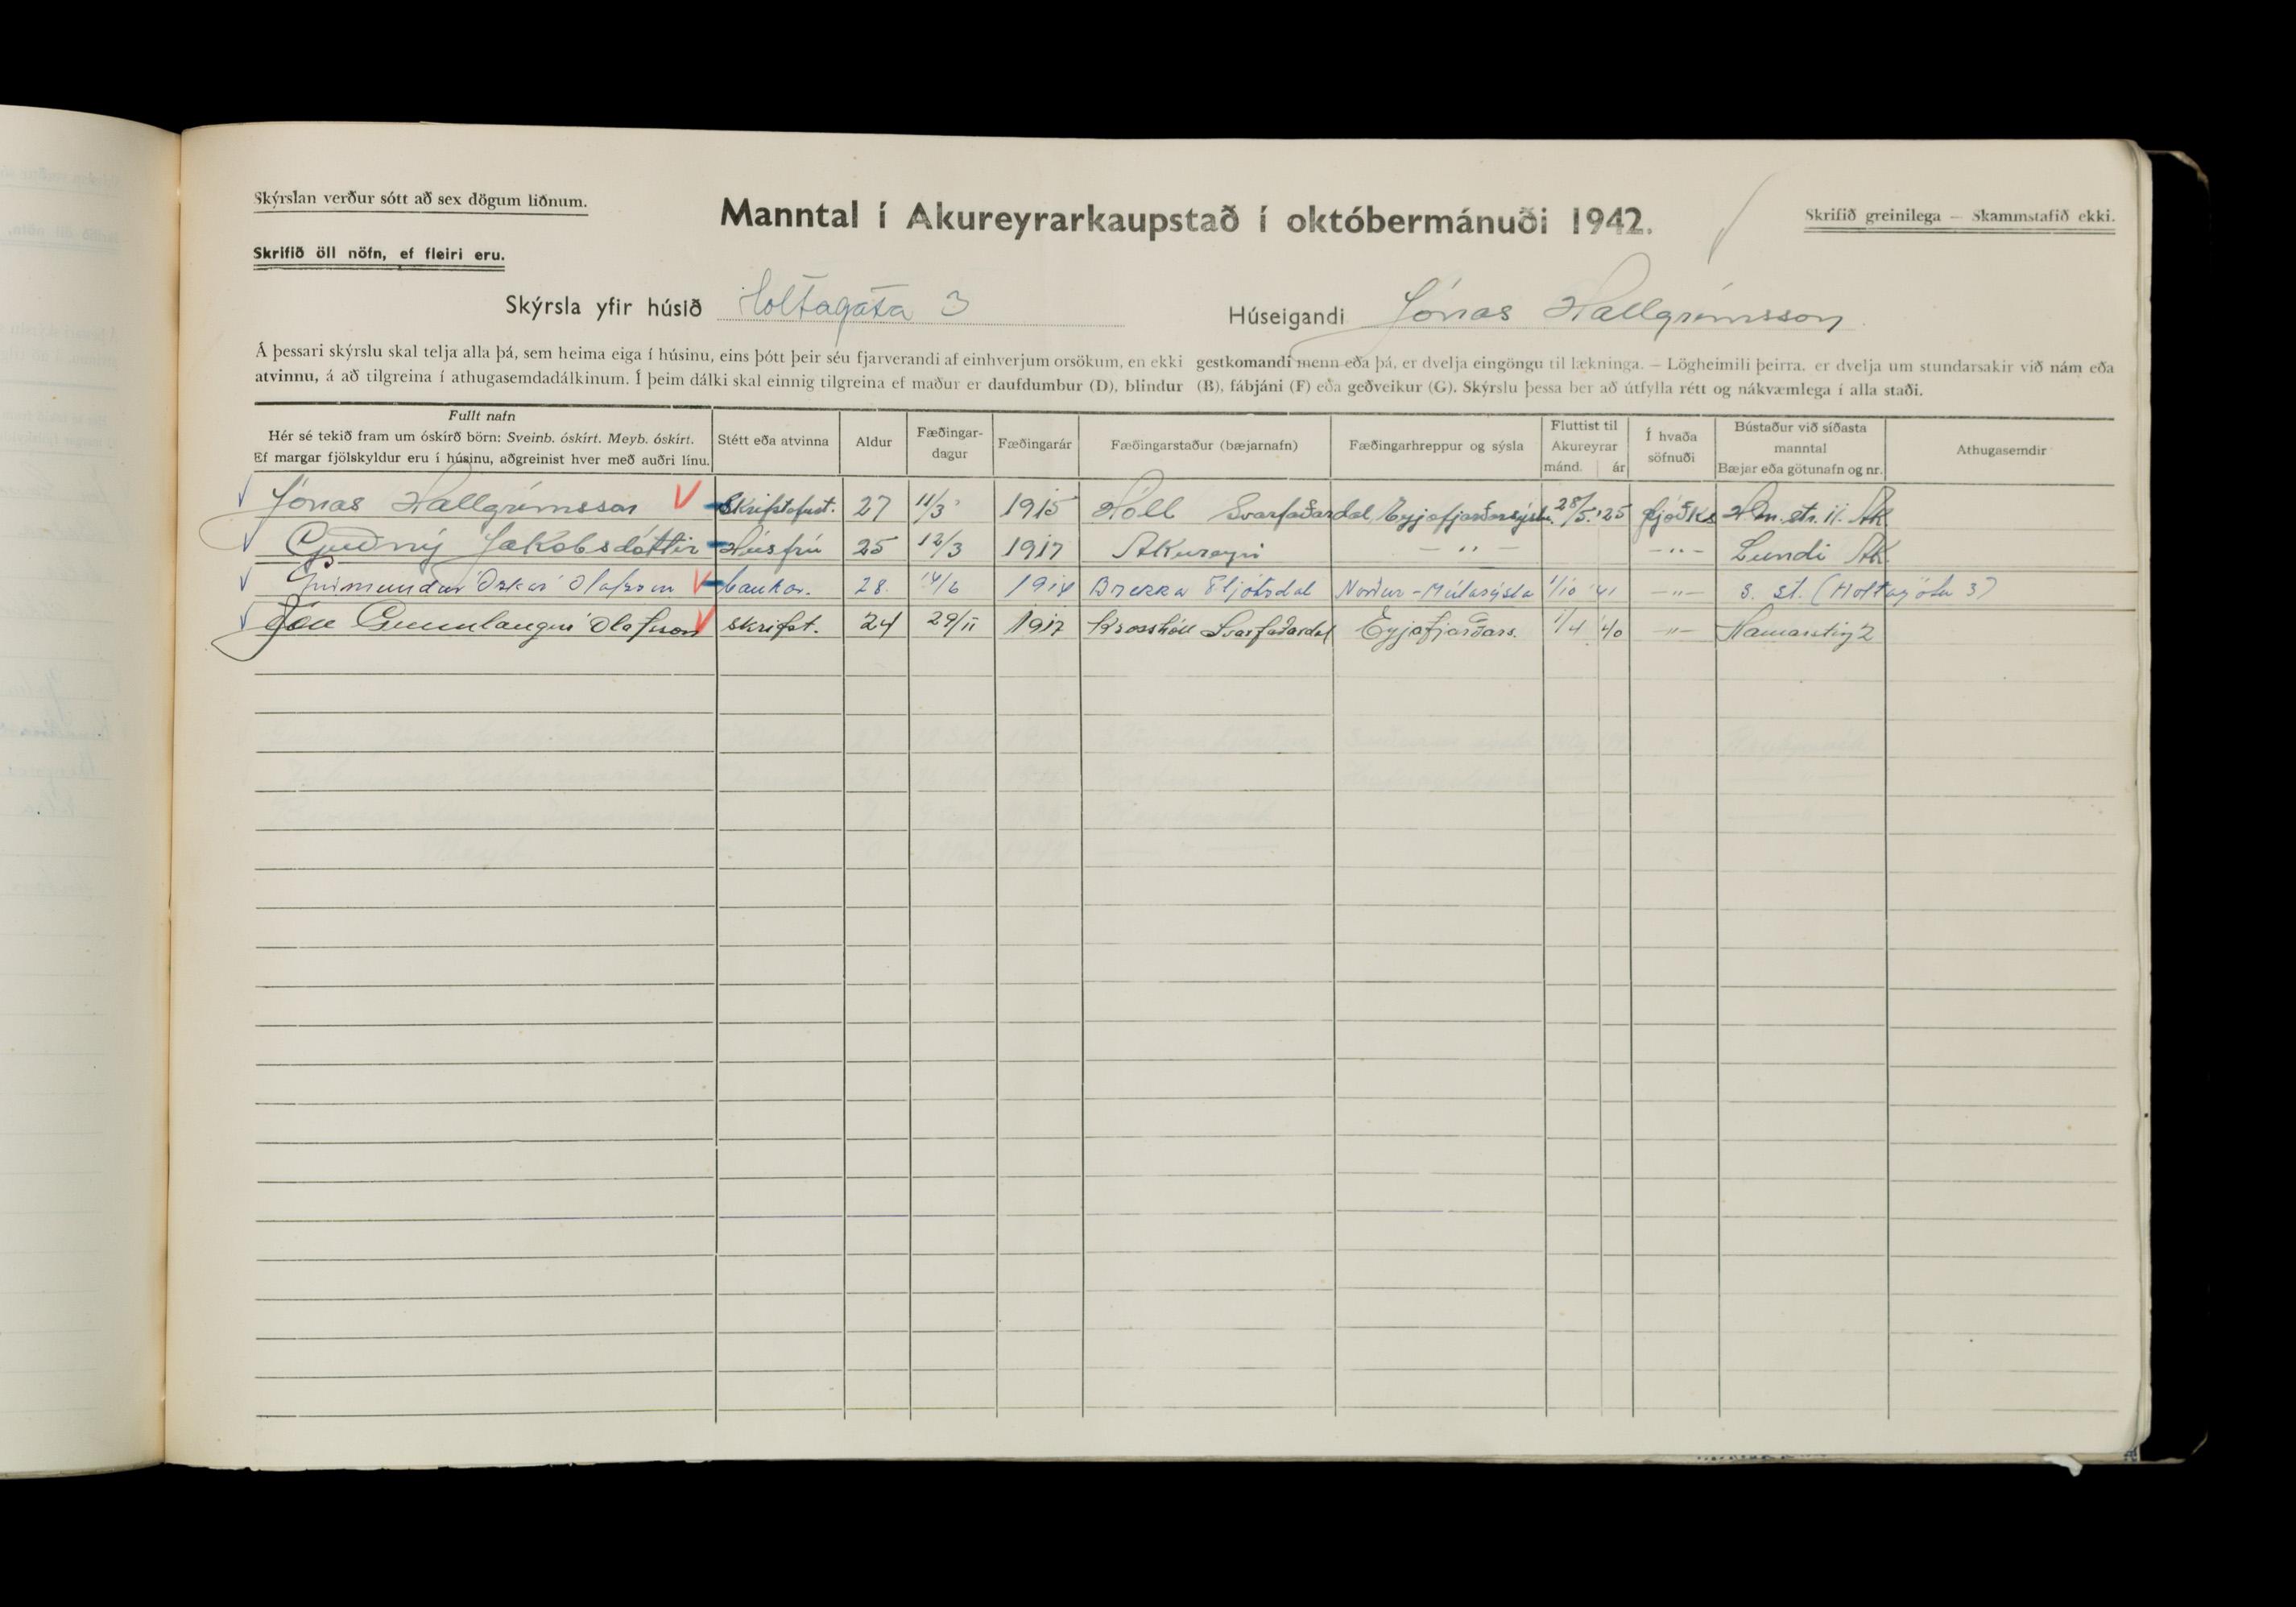 Skýrslan verður sótt að sex dögum liðnum.
Skrifið öll nöfn, ef fleiri eru.
Manntal í Akureyrarkaupstað í októbermánuði 1942.
Skrifið greinilega — Skammstafið ekki.
Skýrsla yfir húsið Holtagata 3 Húseigandi Jónas Hallgrímsson
Á þessari skýrslu skal telja alla þá, sem heima eiga í húsinu, eins þótt þeir séu fjarverandi af einhverjum orsökum, en ekki gestkomandi menn eða þá, er dvelja eingöngu til lækninga. — Lögheimili þeirra, er dvelja um stundarsakir við nám eða
atvinnu, á að tilgreina í athugasemdadálkinum. Í þeim dálki skal einnig tilgreina ef maður er daufdumbur (D), blindur (B), fábjáni (F) eða geðveikur (G). Skýrslu þessa ber að útfylla rétt og nákvæmlega í alla staði.
Fullt nafn
Hér sé tekið fram um óskírð börn: Sveinb. óskírt. Meyb. óskírt.
Ef margar fjölskyldur eru í húsinu, aðgreinist hver með auðri línu.
Stétt eða atvinna
Aldur
Fæðingar-
dagur
Fæðingarár
Fæðingarstaður (bæjarnafn)
Fæðingarhreppur og sýsla
Fluttist til
Akureyrar
mánd. ár
Í hvaða
söfnuði
Bústaður við síðasta
manntal
Bæjar eða götunafn og nr.
Athugasemdir
Jónas Hallgrímsson Skrifstofust. 27 11/3 1915 Hóll Svarfaðardal, Eyjafjarðarsýslu. 28/5 '25 þjóðk. 11. Ak.
Guðný Jakobsdóttir Húsfrú 25 12/3 1917 Akureyri — " — — " — Lundi Ak.
Óskar Ólafsson 28. 14/6 1914 Brekka Fljótsdal Norður-Múlasýsla 1/10 '41 — " — s. st. (Holtagötu 3)
Jón Gunnlaugur Ólafsson skrifst. 24 29/11 1917 Krosshóll Svarfaðardal Eyjafjarðars. 1/4 '40 — " — Hamarstíg 2